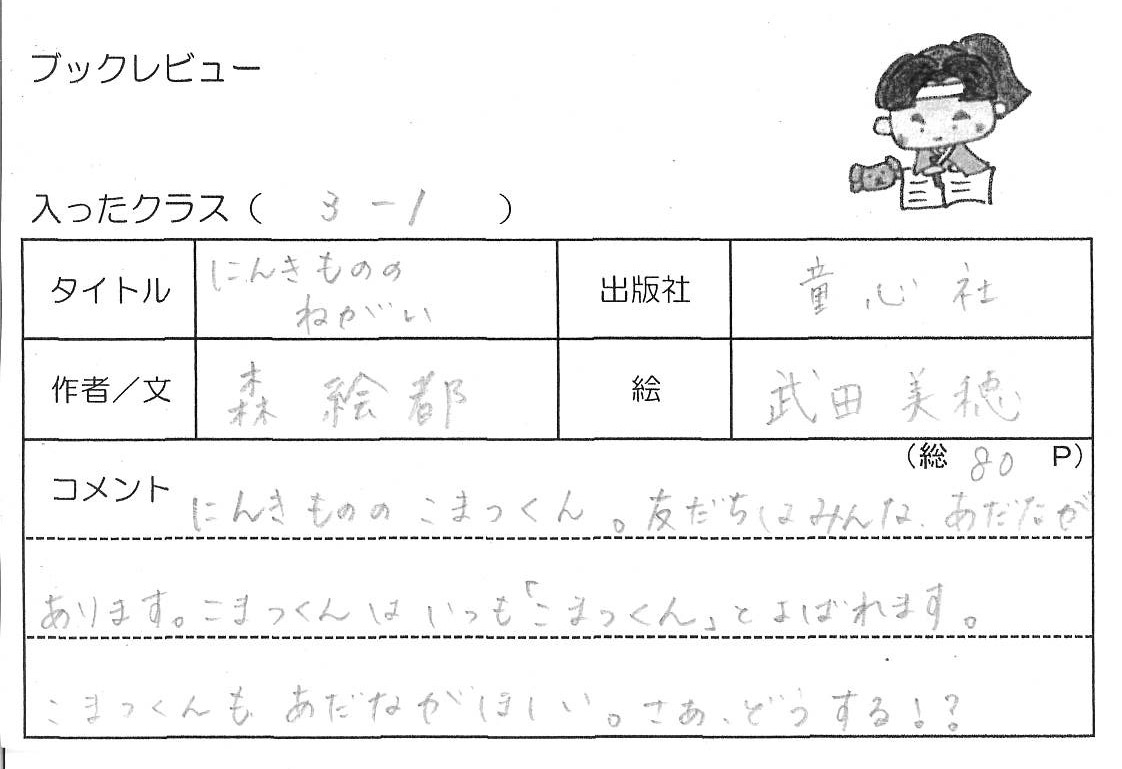 ブックレビュー
入ったクラス（ 3-1 ）
タイトル にんきものの ねがい 出版社 童心社
作者／文 森 絵都 絵 武田 美穂
（総 80 P）
コメント にんきもののこまつくん。友だちはみんな、あだなが
あります。こまつくんはいつも「こまつくん」とよばれます。
こまつくんも あだながほしい。さあ、どうする！？